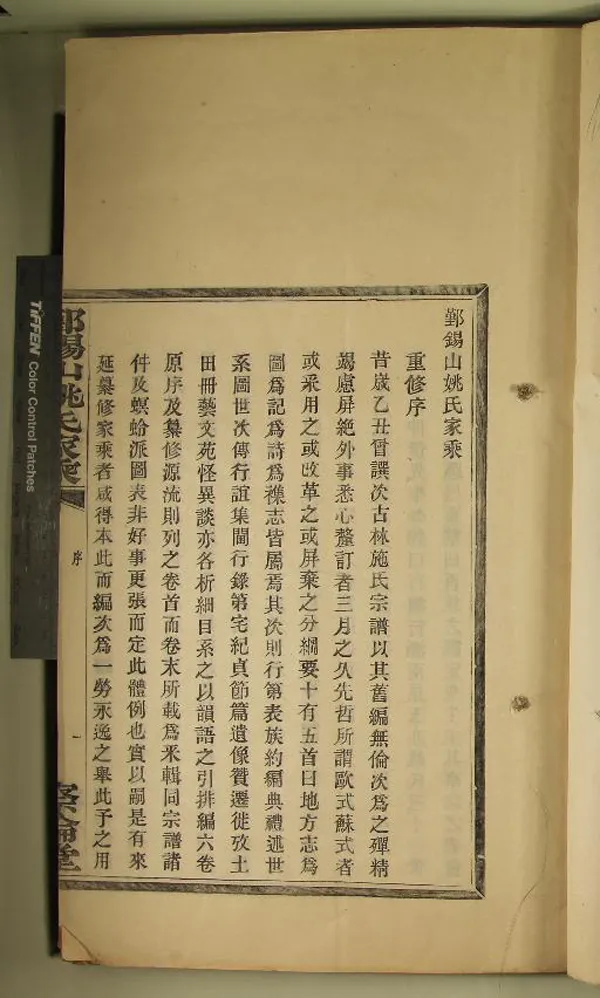 鄞錫山姚氏家乘
重修序
昔歲乙丑曾譔次古林施氏宗譜以其舊編無倫次爲之殫精
竭慮屏絕外事悉心釐訂者三月之久先哲所謂歐式蘇式者
或采用之或改革之或屏棄之分綱要十有五首曰地方志爲
圖爲記爲詩爲襍志皆屬焉其次則行第表族約編典禮述世
系圖世次傳行誼集閫行錄第宅紀貞節篇遺像贊遷徙攷土
田冊藝文苑怪異談亦各析細目系之以韻語之引排編六卷
原序及纂修源流則列之卷首而卷末所載爲釆輯同宗譜諸
件及螟蛉派圖表非好事更張而定此體例也實以嗣是有來
延纂修家乘者咸得本此而編次爲一勞永逸之舉此予之用
鄞錫山姚氏家乘
序
一
TIFFEN Color Control Patches